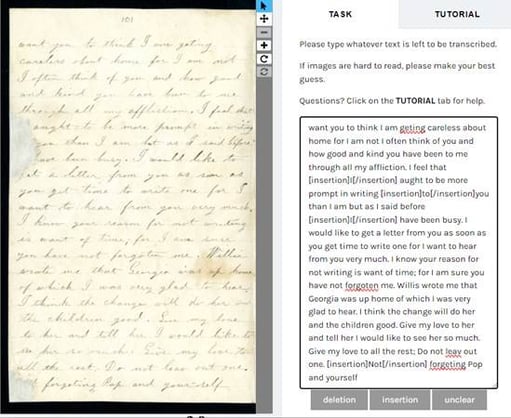 101
want you to think I am geting
careless about home for I am not
I often think of you and how good
and kind you have been to me
through all my affliction. I feel that
aught to be more prompt in writing
you than I am but as I said before
have been busy. I would like to
get a letter from you as soon as
you get time to write one for I
want to hear from you very much.
I know your reason for not writing
is want of time; for I am sure
you have not forgoten me. Willis
wrote me that Georgia was up home
of which I was very glad to hear.
I think the change will do her
the children good. Give my love
to her and tell her I would like to
see her so much. Give my love to
all the rest. Do not out one.
forgeting Pap and yourself
TASK
TUTORIAL
Please type whatever text is left to be transcribed.
If images are hard to read, please make your best
guess.
Questions? Click on the TUTORIAL tab for help.
want you to think I am geting careless about
home for I am not I often think of you and
how good and kind you have been to me
through all my affliction. I feel that
[insertion]I[/insertion] aught to be more
prompt in writing [insertion]to[/insertion]you
than I am but as I said before
[insertion]I[/insertion] have been busy. I
would like to get a letter from you as soon as
you get time to write one for I want to hear
from you very much. I know your reason for
not writing is want of time; for I am sure you
have not forgoten me. Willis wrote me that
Georgia was up home of which I was very
glad to hear. I think the change will do her
and the children good. Give my love to her
and tell her I would like to see her so much.
Give my love to all the rest; Do not leav out
one. [insertion]Not[/insertion] forgeting Pop
and yourself
deletion
insertion
unclear